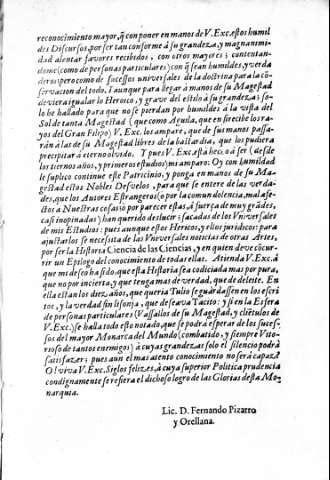 reconocimiento mayor, q̃ con poner en manos de V. Exc. estos humil
des Discursos, por ser tan conforme á su grandeza, y magnanimi
dad alentar favores recibidos, con otros mayores; contentan
dome (como de personas particulares) con q̃ sean humildes, y verda
deros; pero como de sucessos universales de la doctrina para la cõ
servacion del todo. I aunque para llegar á manos de su Magestad
deviera igualar lo Heroico, y grave del estilo à su grandeza; so-
lo he hallado para que no se pierdan por humildes à la vista del
Sol de tanta Magestad (que como Aguila, que en si recibe los ra-
yos del Gran Filipo) V. Exc. los ampare, que de sus manos passa-
rán à las de su Magestad libres de la bastardia, que los pudiera
precipitar à eterno olvido. Y pues V. Exc. està hecho à ser (desde
los tiernos años, y primeros estudios) mi amparo: Oy con humildad
le suplico continue este Patrocinio, y ponga en manos de su Ma-
gestad estos Nobles Desvelos, para que se entere de las verda-
des, que los Autores Estrangeros (o por la comun dolencia, mal afe-
cto à Nuestras cosas; ò por parecer estas, à fuerça de muy grãdes,
casi inopinadas) han querido deslucir; sacadas de los Vniversales
de mis Estudios: pues aunque estos Heroicos, y ellos juridicos: para
ajustarlos se necessita de las Vniversales noticias de otras Artes,
por ser la Historia Ciencia de las Ciencias, y en quien deve cõcur-
rir un Epilogo del conocimiento de todas ellas. Atienda V. Exc. à
que mi deseo ha sido, que esta Historia sea codiciada mas por pura,
que no por incierta, y que tenga mas de verdad, que de deleite. En
ella están los diez años, que queria Tulio se guardassen en los escri
tos, y la verdad sin lisonja, que deseava Tacito: y si en la Esfera
de personas particulares (Vassallos de su Magestad, y cliẽtulos de
V. Exc.) se halla todo esto notado, que se podrà esperar de los suces-
sos del mayor Monarca del Mundo (combatido, y siempre Vito-
rioso de tantos enemigos) à cuyas grandezas solo el silencio podrà
satisfazer; pues aun el mas atento conocimiento no será capaz?
O! viva V. Exc. Siglos felizes, à cuya superior Politica prudencia
condignamente se refiera el dichoso logro de las Glorias desta Mo-
narquia.
Lic. D. Fernando Pizarro
y Orellana.